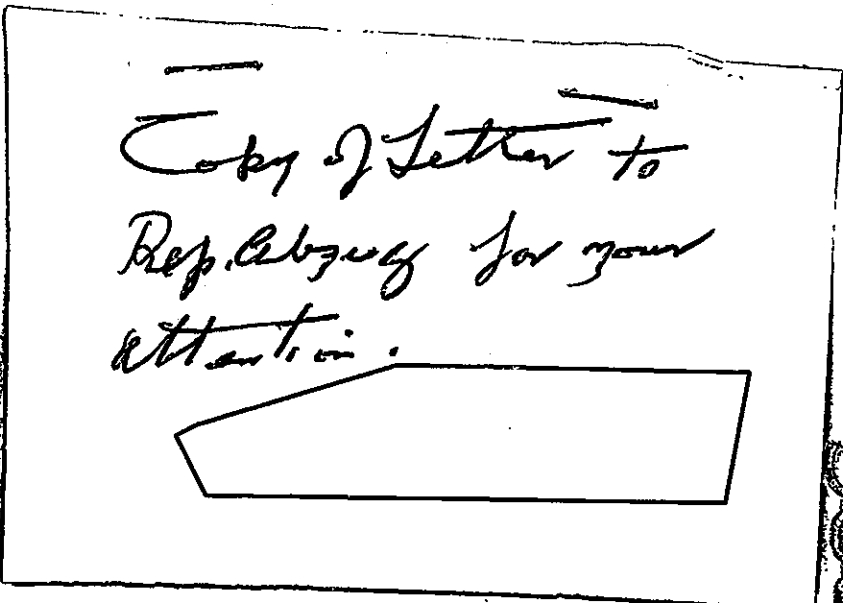 Copy of Letter to
Rep. Abzug for your
attention.